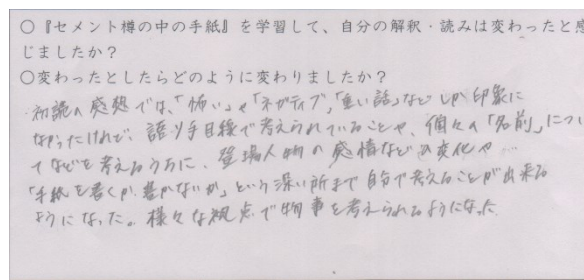 ○『セメント樽の中の手紙』を学習して、自分の解釈・読みは変わったと感
じましたか?
○変わったとしたらどのように変わりましたか?
初読の感想では、「怖い」や「ネガティブ」「重い話」などしか印象に
なかったけれど、語り手目線で考えられていることや、個々の「名前」につい
てなどを考えるうちに、登場人物の感情などの変化や
「手紙を書くか、書かないか」という深い所まで自分で考えることが出来る
ようになった。様々な視点で物事を考えられるようになった